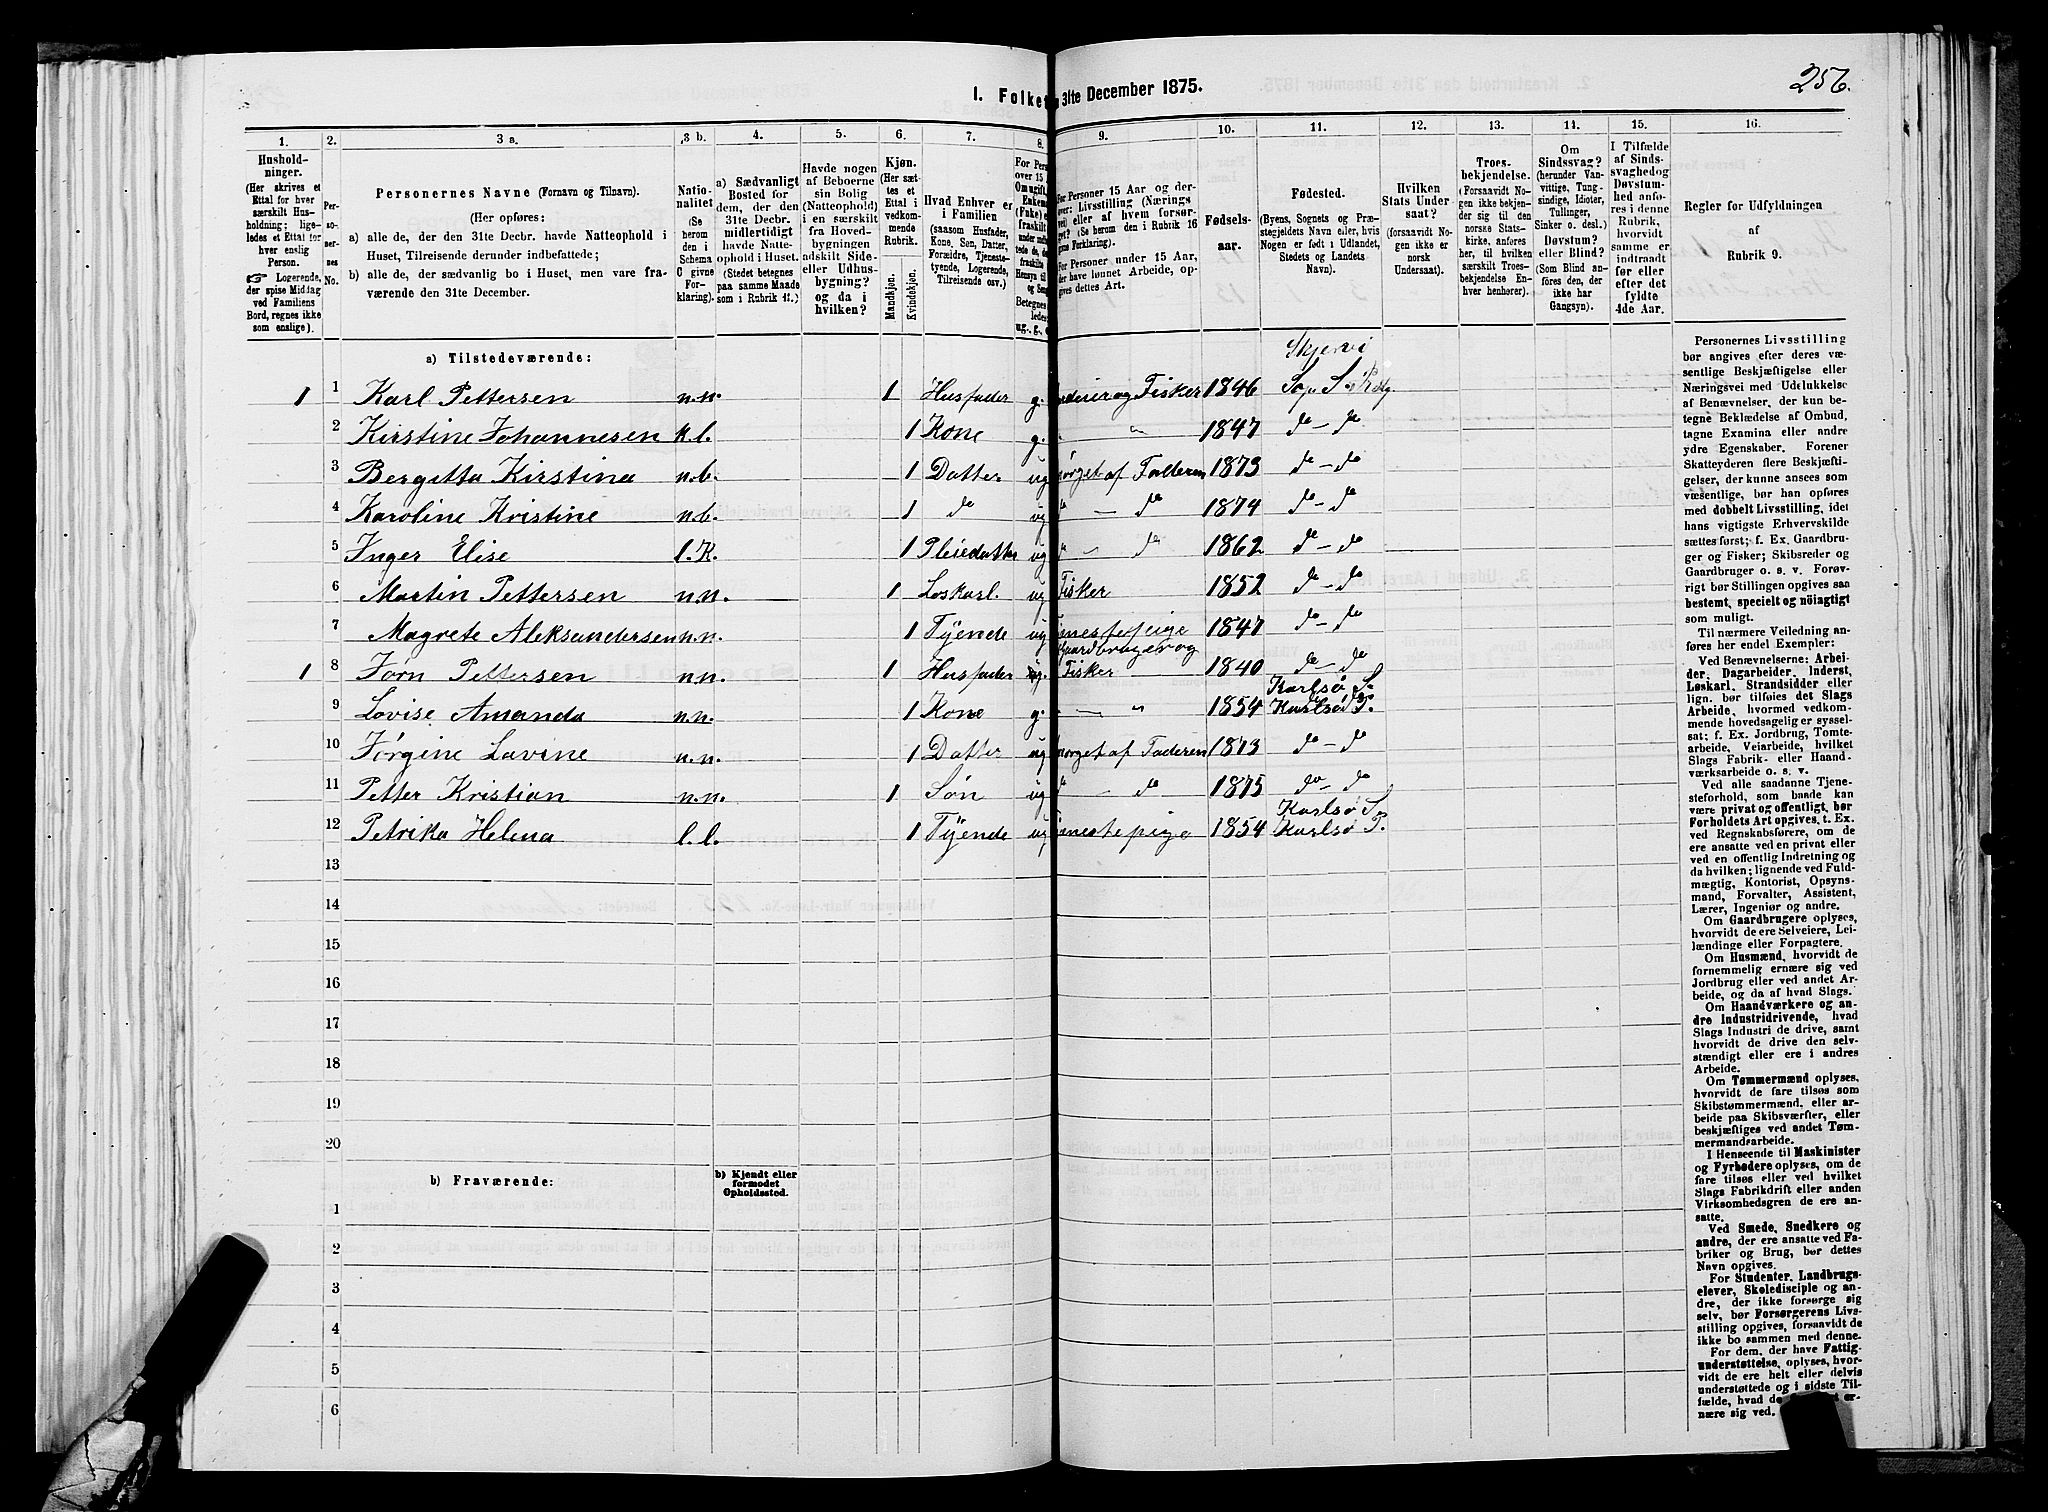 256.
I. Folket 31te December 1875.
1. 2. 3 a. 3 b. 4. 5. 6. 7. 8. 9. 10. 11. 12. 13. 14. 15. 16.
Hushold-
ninger.
(Her skrives et
Ettal for hver
særskilt Hus-
holdning; lige-
ledes et Ettal for
hver enslig
Person.
☞ Logerende,
der spise Middag
ved Familiens
Bord, regnes ikke
som enslige).
Per-
so-
ner-
nes
No.
Personernes Navne (Fornavn og Tilnavn).
(Her opføres:
a) alle de, der den 31te Decbr. havde Natteophold i
Huset, Tilreisende derunder indbefattede;
b) alle de, der sædvanlig bo i Huset, men vare fra-
værende den 31te December.
Natio-
nalitet
(Se
herom
den i
Schema
C givne
For-
klaring).
a) Sædvanligt
Bosted for
dem, der den
31te Decbr.
midlertidigt
havde Natte-
ophold i Huset.
(Stedet betegnes
paa samme Maade
som i Rubrik 11.)
Havde nogen
af Beboerne
sin Bolig
(Natteophold)
i en særskilt
fra Hoved-
bygningen
adskilt Side-
eller Udhus-
bygning?
og da i
hvilken?
Kjøn.
(Her sæt-
tes et
Ettal i
vedkom-
mende
Rubrik.
Mandkjøn.
Kvindekjøn.
Hvad Enhver er
i Familien
(saasom Husfader,
Kone, Søn, Datter,
Forældre, Tjeneste-
tyende, Logerende,
Tilreisende osv.)
For Pers
over 15
Om ugift,
Enkema
(Enke) e
fraskilt
For Personer 15 Aar og der-
over: Livsstilling (Nærings
vei) eller af hvem forsør-
get? (Se herom den i Rubrik 16
givne Forklaring).
For Personer under 15 Aar,
der have lønnet Arbeide, op-
gives dettes Art.
Fødsels-
aar.
Fødested.
(Byens, Sognets og Præ-
stegjeldets Navn eller, hvis
Nogen er født i Udlandet,
Stedets og Landets
Navn).
Hvilken
Stats Under
saat?
(forsaavidt No-
gen ikke er
norsk
Undersaat).
Troes-
bekjendelse.
(Forsaavidt No-
gen ikke bekjen-
der sig til den
norske Stats-
kirke, anføres
her, til hvilken
særskilt Troes-
bekjendelse En-
hver henhører).
Om
Sindssvag?
(herunder Van-
vittige, Tung-
sindige, Idioter,
Tullinger,
Sinker o. desl.)
Døvstum?
eller Blind?
(Som Blind an-
føres den, der
ikke har
Gangsyn).
I Tilfælde
af Sinds-
svaghed og
Døvstum-
hed anfø-
res i denne
Rubrik,
hvorvidt
samme er
indtraadt
før eller
efter det
fyldte
4de Aar.
Regler for Udfyldningen
af
Rubrik 9.
a) Tilstedeværende:
Skjervi
1 1 Karl Pettersen n.n. 1 Husfader g. og Fisker 1846
2 Kirstine Johannesen k.l. 1 Kone g. " 1847 do – do
3 Bergitta Kirstina n.b. 1 Datter ug ørget af Faderen 1873 do – do
4 Karoline Kristine n.b. 1 do ug do – do 1874 do – do
5 Inger Elise l.K. 1 Pleiedatter ug do – do 1862 do – do
6 Martin Pettersen n.n. 1 Løskarl. ug Fisker 1852 do – do
7 Magrete Aleksandersen n.n. 1 Tyende ug nestepeige 1847 do – do
Gaardbruger og
1 8 Jørn Pettersen n.n. 1 Husfader g. Fisker 1840 do – do
Karlsø S.
9 Lovise Amanda n.n. 1 Kone g. – " 1854 Karlsø P.
10 Jørgine Lavine n.n. 1 Datter ug sørget af Faderen 1873 do – do
11 Petter Kristian n.n. 1 Søn ug do – do 1875 do – do
Karlsø S.
12 Petrika Helena l.l. 1 Tyende ug enestepige 1854 Karlsø P.
13
14
15
16
17
18
19
20
b) Fraværende:
b) Kjendt eller
formodet
Opholdssted.
1
2
3
4
5
6
Personernes Livsstilling
bør angives efter deres væ-
sentlige Beskjæftigelse eller
Næringsvei med Udelukkelse
af Benævnelser, der kun be-
tegne Beklædelse af Ombud,
tagne Examina eller andre
ydre Egenskaber. Forener
Skatteyderen flere Beskjæfti-
gelser, der kunne ansees som
væsentlige, bør han opføres
med dobbelt Livsstilling, idet
hans vigtigste Erhvervskilde
sættes først; f. Ex. Gaardbru-
ger og Fisker; Skibsreder og
Gaardbruger o. s. v. Forøv-
rigt bør Stillingen opgives saa
bestemt, specielt og nöiagtigt
som muligt.
Til nærmere Veiledning an-
føres her endel Exempler:
Ved Benævnelserne: Arbei-
der, Dagarbeider, Inderst,
Løskarl, Strandsidder eller
lign. bør tilføies det Slags
Arbeide, hvormed vedkom-
mende hovedsagelig er syssel-
sat; f. Ex. Jordbrug, Tomte-
arbeide, Veiarbeide, hvilket
Slags Fabrik- eller Haand-
værksarbeide o. s. v.
Ved alle saadanne Tjene-
steforhold, som baade kan
være privat og offentligt, bør
Forholdets Art opgives, t. Ex.
ved Regnskabsførere, om de
ere ansatte ved en privat eller
ved en offentlig Indretning og
da hvilken; lignende ved Fuld-
mægtig, Kontorist, Opsyns-
mand, Forvalter, Assistent,
Lærer, Ingeniør og andre.
Om Gaardbrugere oplyses,
hvorvidt de ere Selveiere, Lei-
lændinge eller Forpagtere.
Om Husmænd, hvorvidt de
fornemmelig ernære sig ved
Jordbrug eller ved andet Ar-
beide, og da af hvad Slags.
Om Haandværkere og an-
dre Industridrivende, hvad
Slags Industri de drive, samt
hvorvidt de drive den selv-
stændigt eller ere i andres
Arbeide.
Om Tømmermænd oplyses,
hvorvidt de fare tilsøs som
Skibstømmermænd, eller ar-
beide paa Skibsværfter, eller
beskjæftiges ved andet Tøm-
mermandsarbeide.
I Henseende til Maskinister
og Fyrbødere oplyses, om de
fare tilsøs eller ved hvilket
Slags Fabrikdrift eller anden
Virksomhedsgren de ere an-
satte.
Ved Smede, Snedkere og
andre, der ere ansatte ved Fa-
briker og Brug, bør dettes
Navn opgives.
For Studenter, Landbrugs-
elever, Skoledisciple og an-
dre, der ikke forsørge sig
selv, bør Forsørgerens Livs-
stilling opgives, forsaavidt de
ikke bo sammen med denne.
For dem, der have Fattig-
understøttelse, oplyses, hvor-
vidt de ere helt eller delvis
understøttede og i sidste Til-
fælde, hvad de er-
nære sig ved.